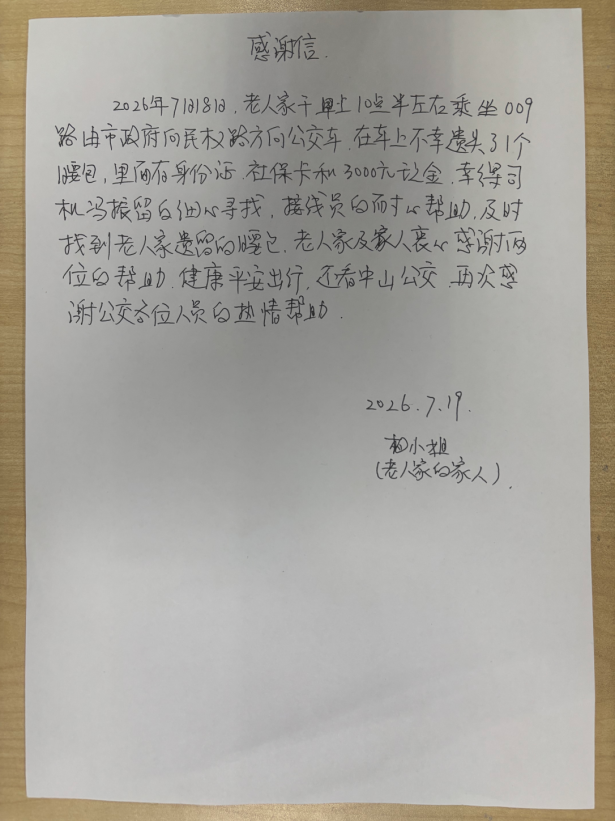 感谢信.
2026年7月18日,老人家于早上10点半左右乘坐009
路由市政府向民权路方向公交车,在车上不幸遗失了1个
腰包,里面有身份证,社保卡和3000元现金,幸得司
机冯振留的细心寻找,接线员的耐心帮助,及时
找到老人家遗留的腰包.老人家及家人衷心感谢两
位的帮助.健康平安出行,还看中山公交.再次感
谢公交各位人员的热情帮助.
2026.7.19.
小姐
(老人家的家人).